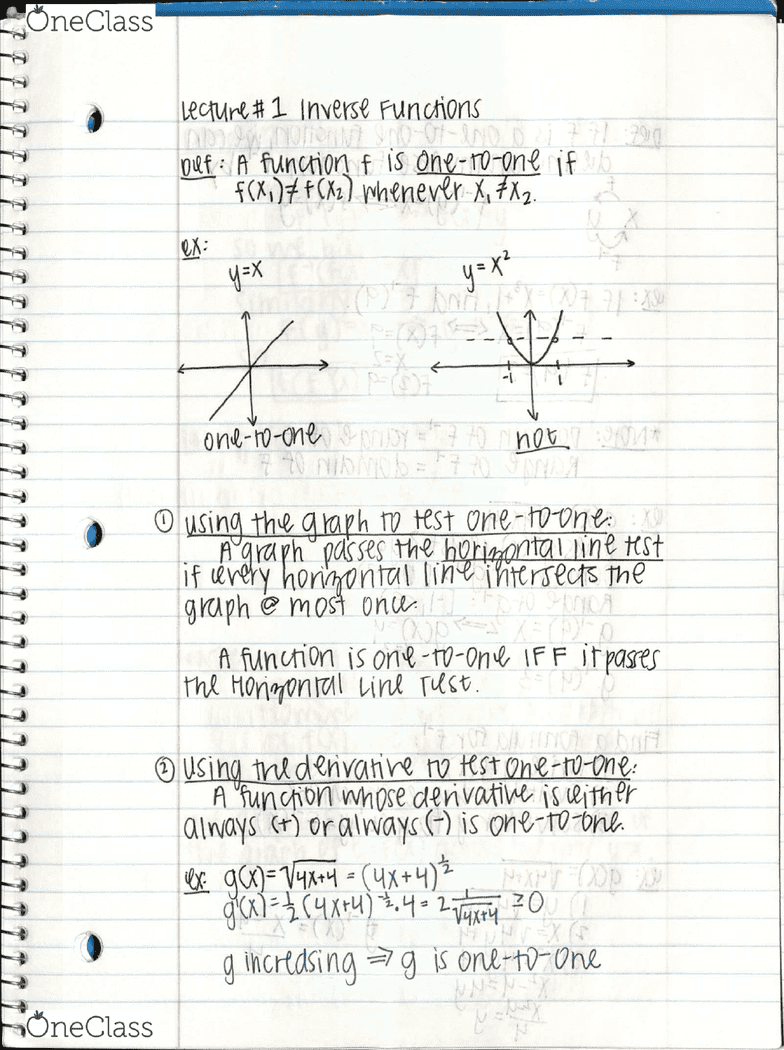 OneClass
Lecture #1 Inverse Functions
Def: A function f is one-to-one if
f(x₁)≠f(x₂) whenever x₁≠x₂.
ex:
y=x
y=x²
-1 1
one-to-one
not
① using the graph to test one-to-one:
A graph passes the horizontal line test
if every horizontal line intersects the
graph @ most once.
A function is one-to-one IFF it passes
the Horizontal Line Test.
② Using the derivative to test one-to-one:
A function whose derivative is either
always (+) or always (-) is one-to-one.
ex: g(x)=√4x+4 = (4x+4)^½
g'(x)=½(4x+4)^-½·4 = 2 1/√4x+4 ≥0
g increasing ⇒ g is one-to-one
OneClass